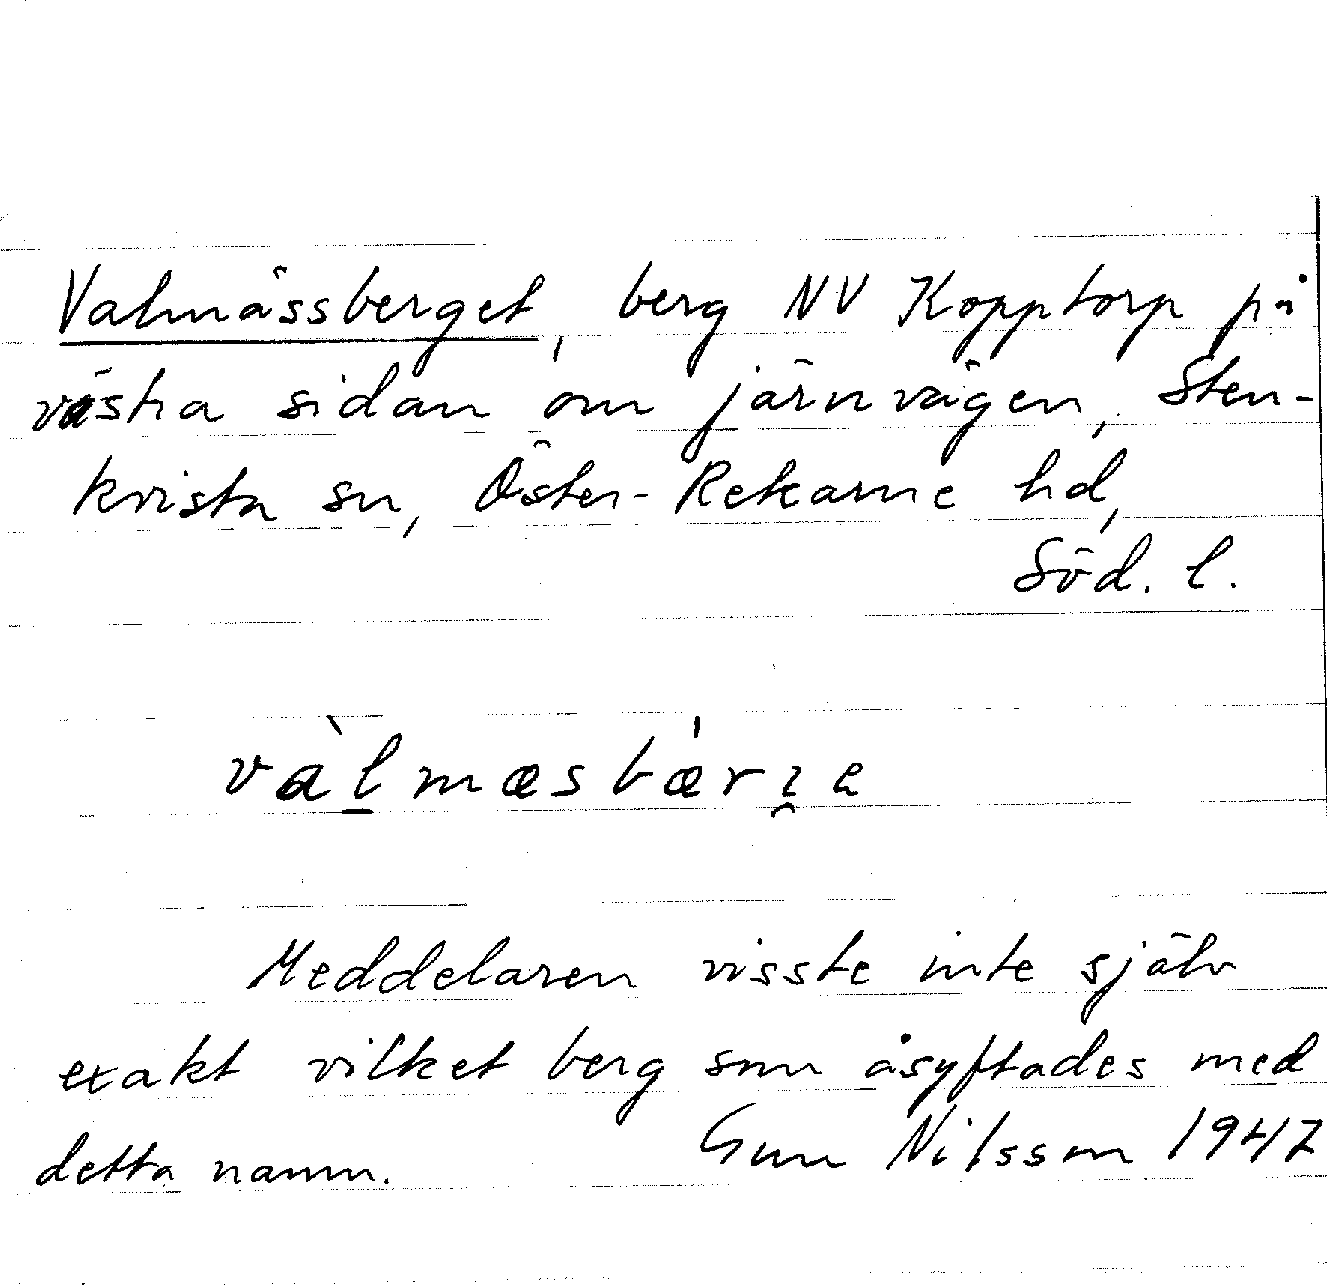 Valmässberget, berg NV Kopptorp på
västra sidan om järnvägen, Sten-
kvista sn, Öster-Rekarne hd,
Söd. l.
và̀l̲mæsbæ̍rı̯e
Meddelaren visste inte själv
exakt vilket berg som åsyftades med
detta namn. Gun Nilsson 1947